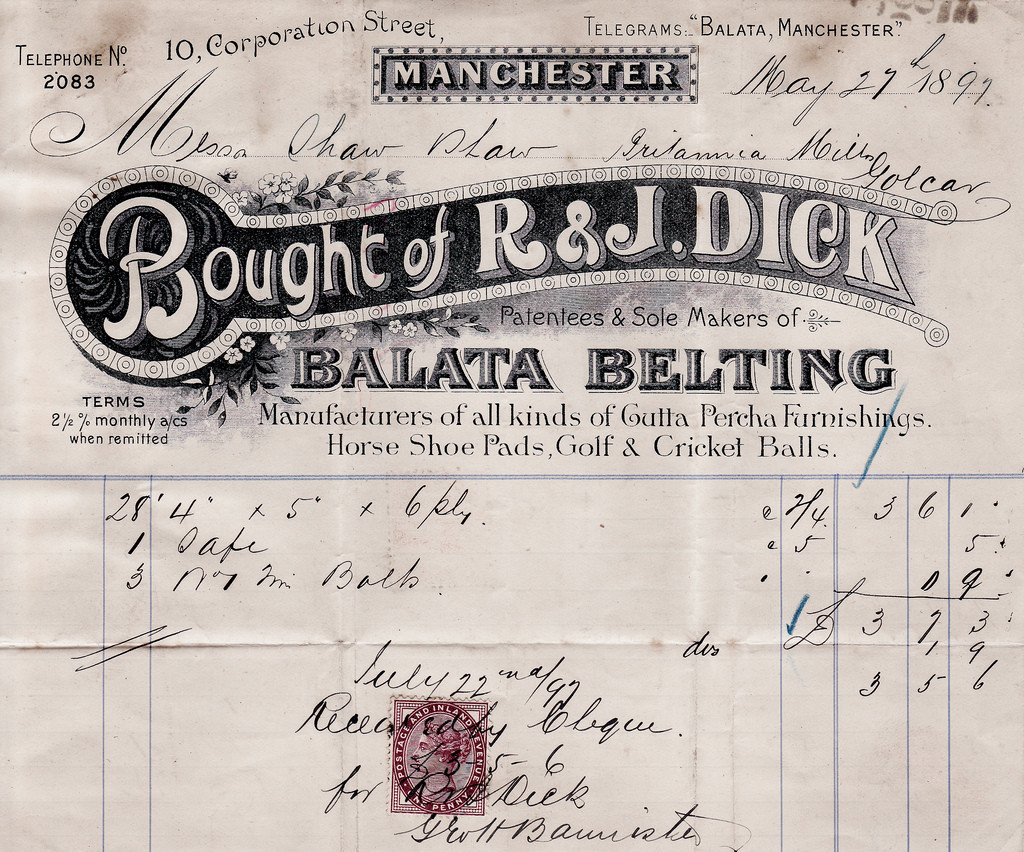 10, Corporation Street,
TELEGRAMS: "BALATA, MANCHESTER."
TELEPHONE No.
2083
MANCHESTER
May 27th 1897.
Messrs Shaw & Shaw Britannia Mills
Golcar
Bought of R & J. DICK
Patentees & Sole Makers of
BALATA BELTING
TERMS
2½ % monthly a/cs
when remitted
Manufacturers of all kinds of Gutta Percha Furnishings.
Horse Shoe Pads, Golf & Cricket Balls.
28' 4" x 5" x 6 ply. 2/4. 3 6 1
1 5 5
3 9
£ 3 7 3
dis 1 9
3 5 6
July 22nd/97
Received by Cheque.
£3-5-6
for R & J Dick
Geo H Bannister
POSTAGE AND INLAND REVENUE
ONE PENNY